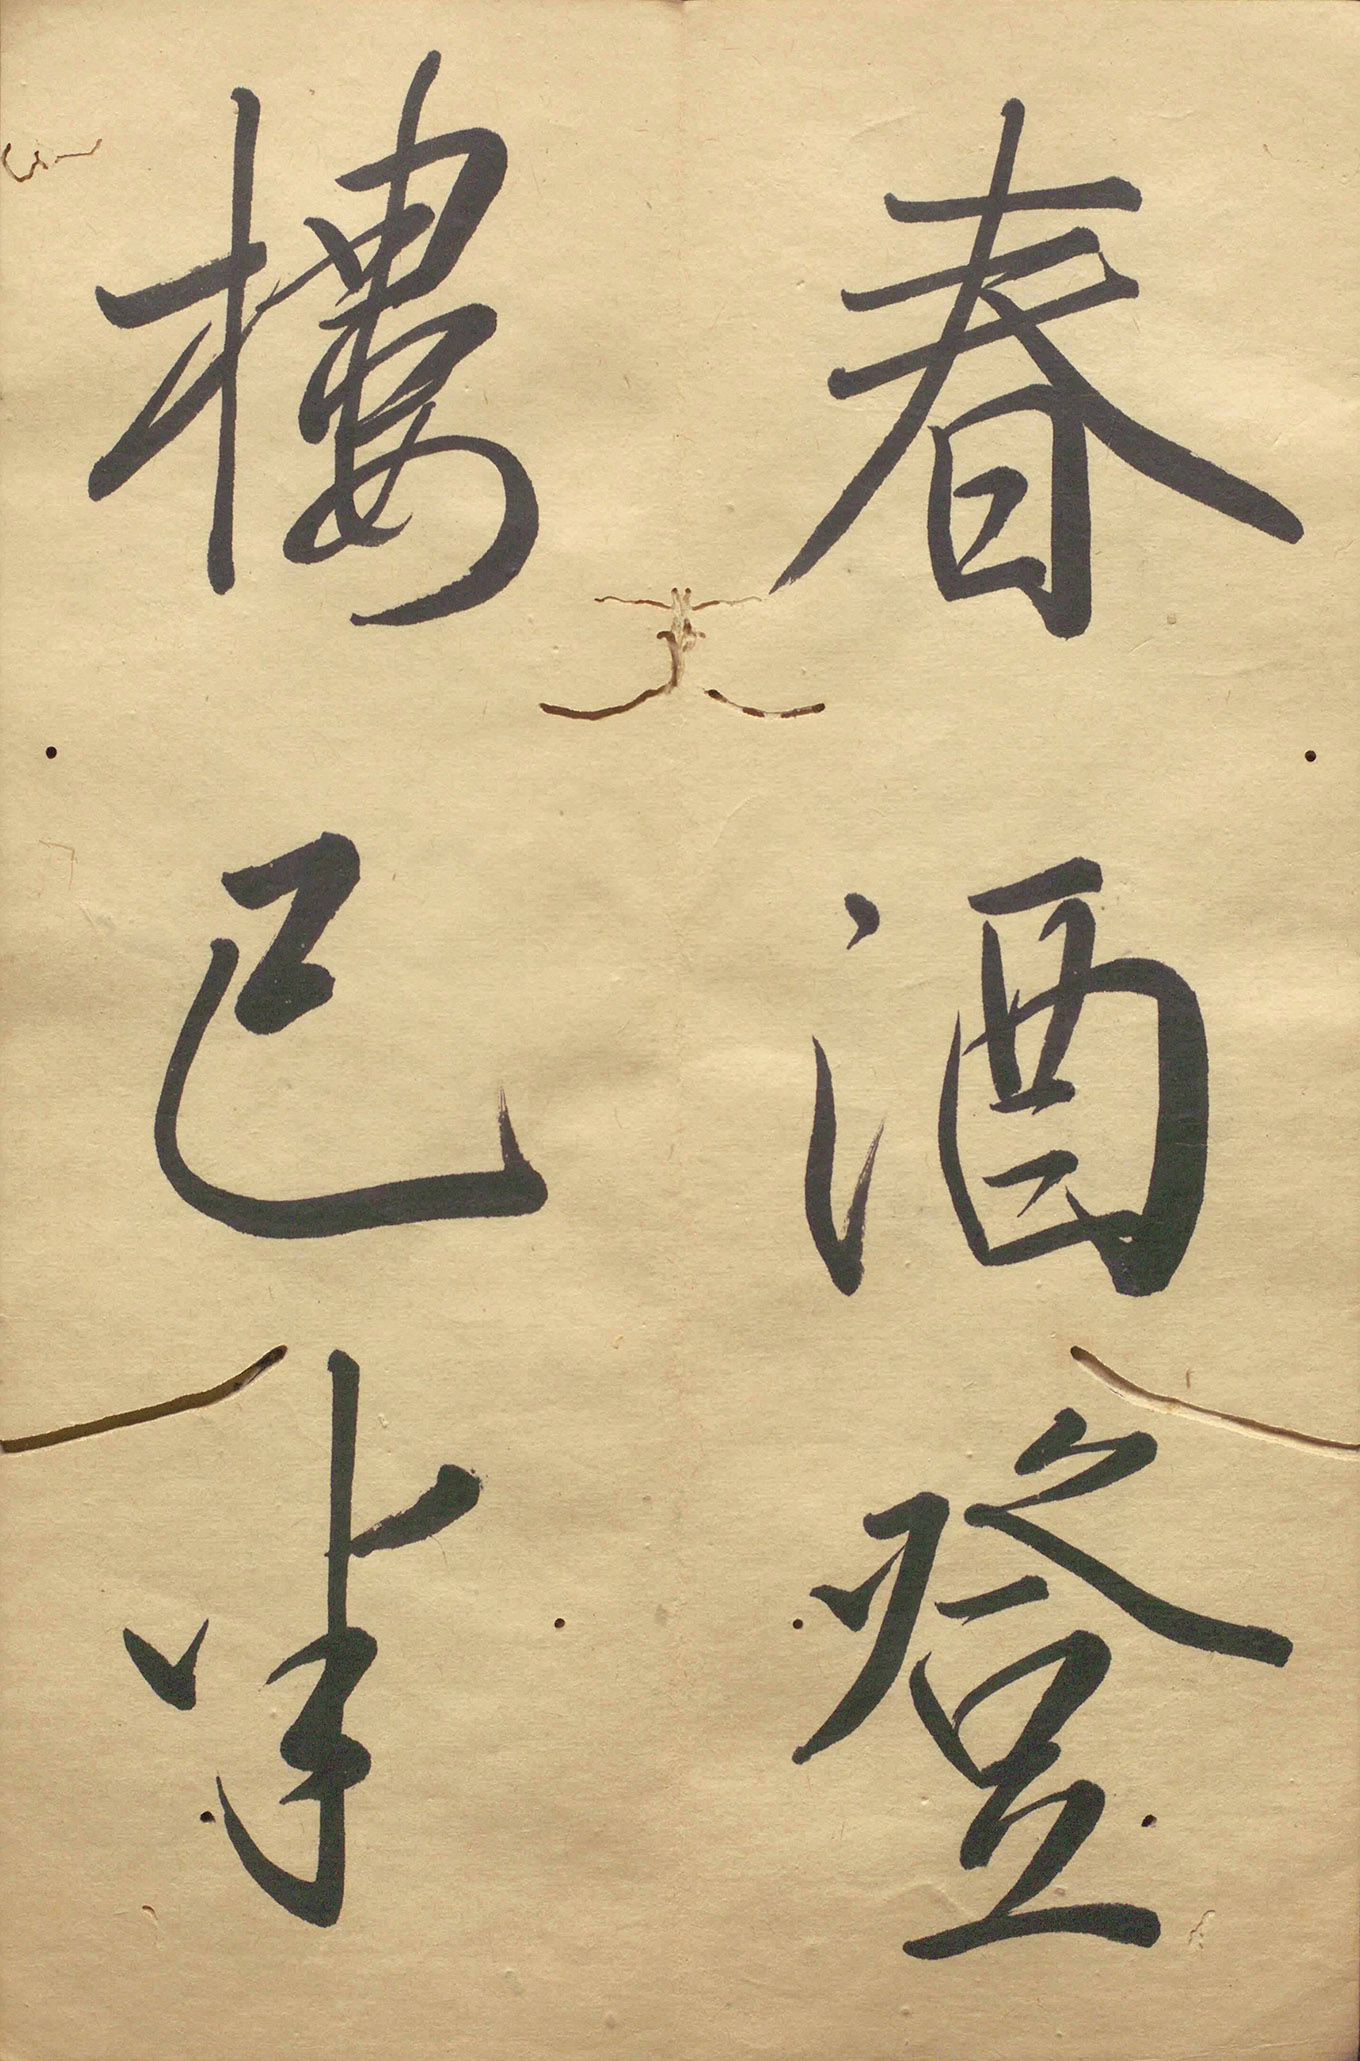 春酒登
樓已